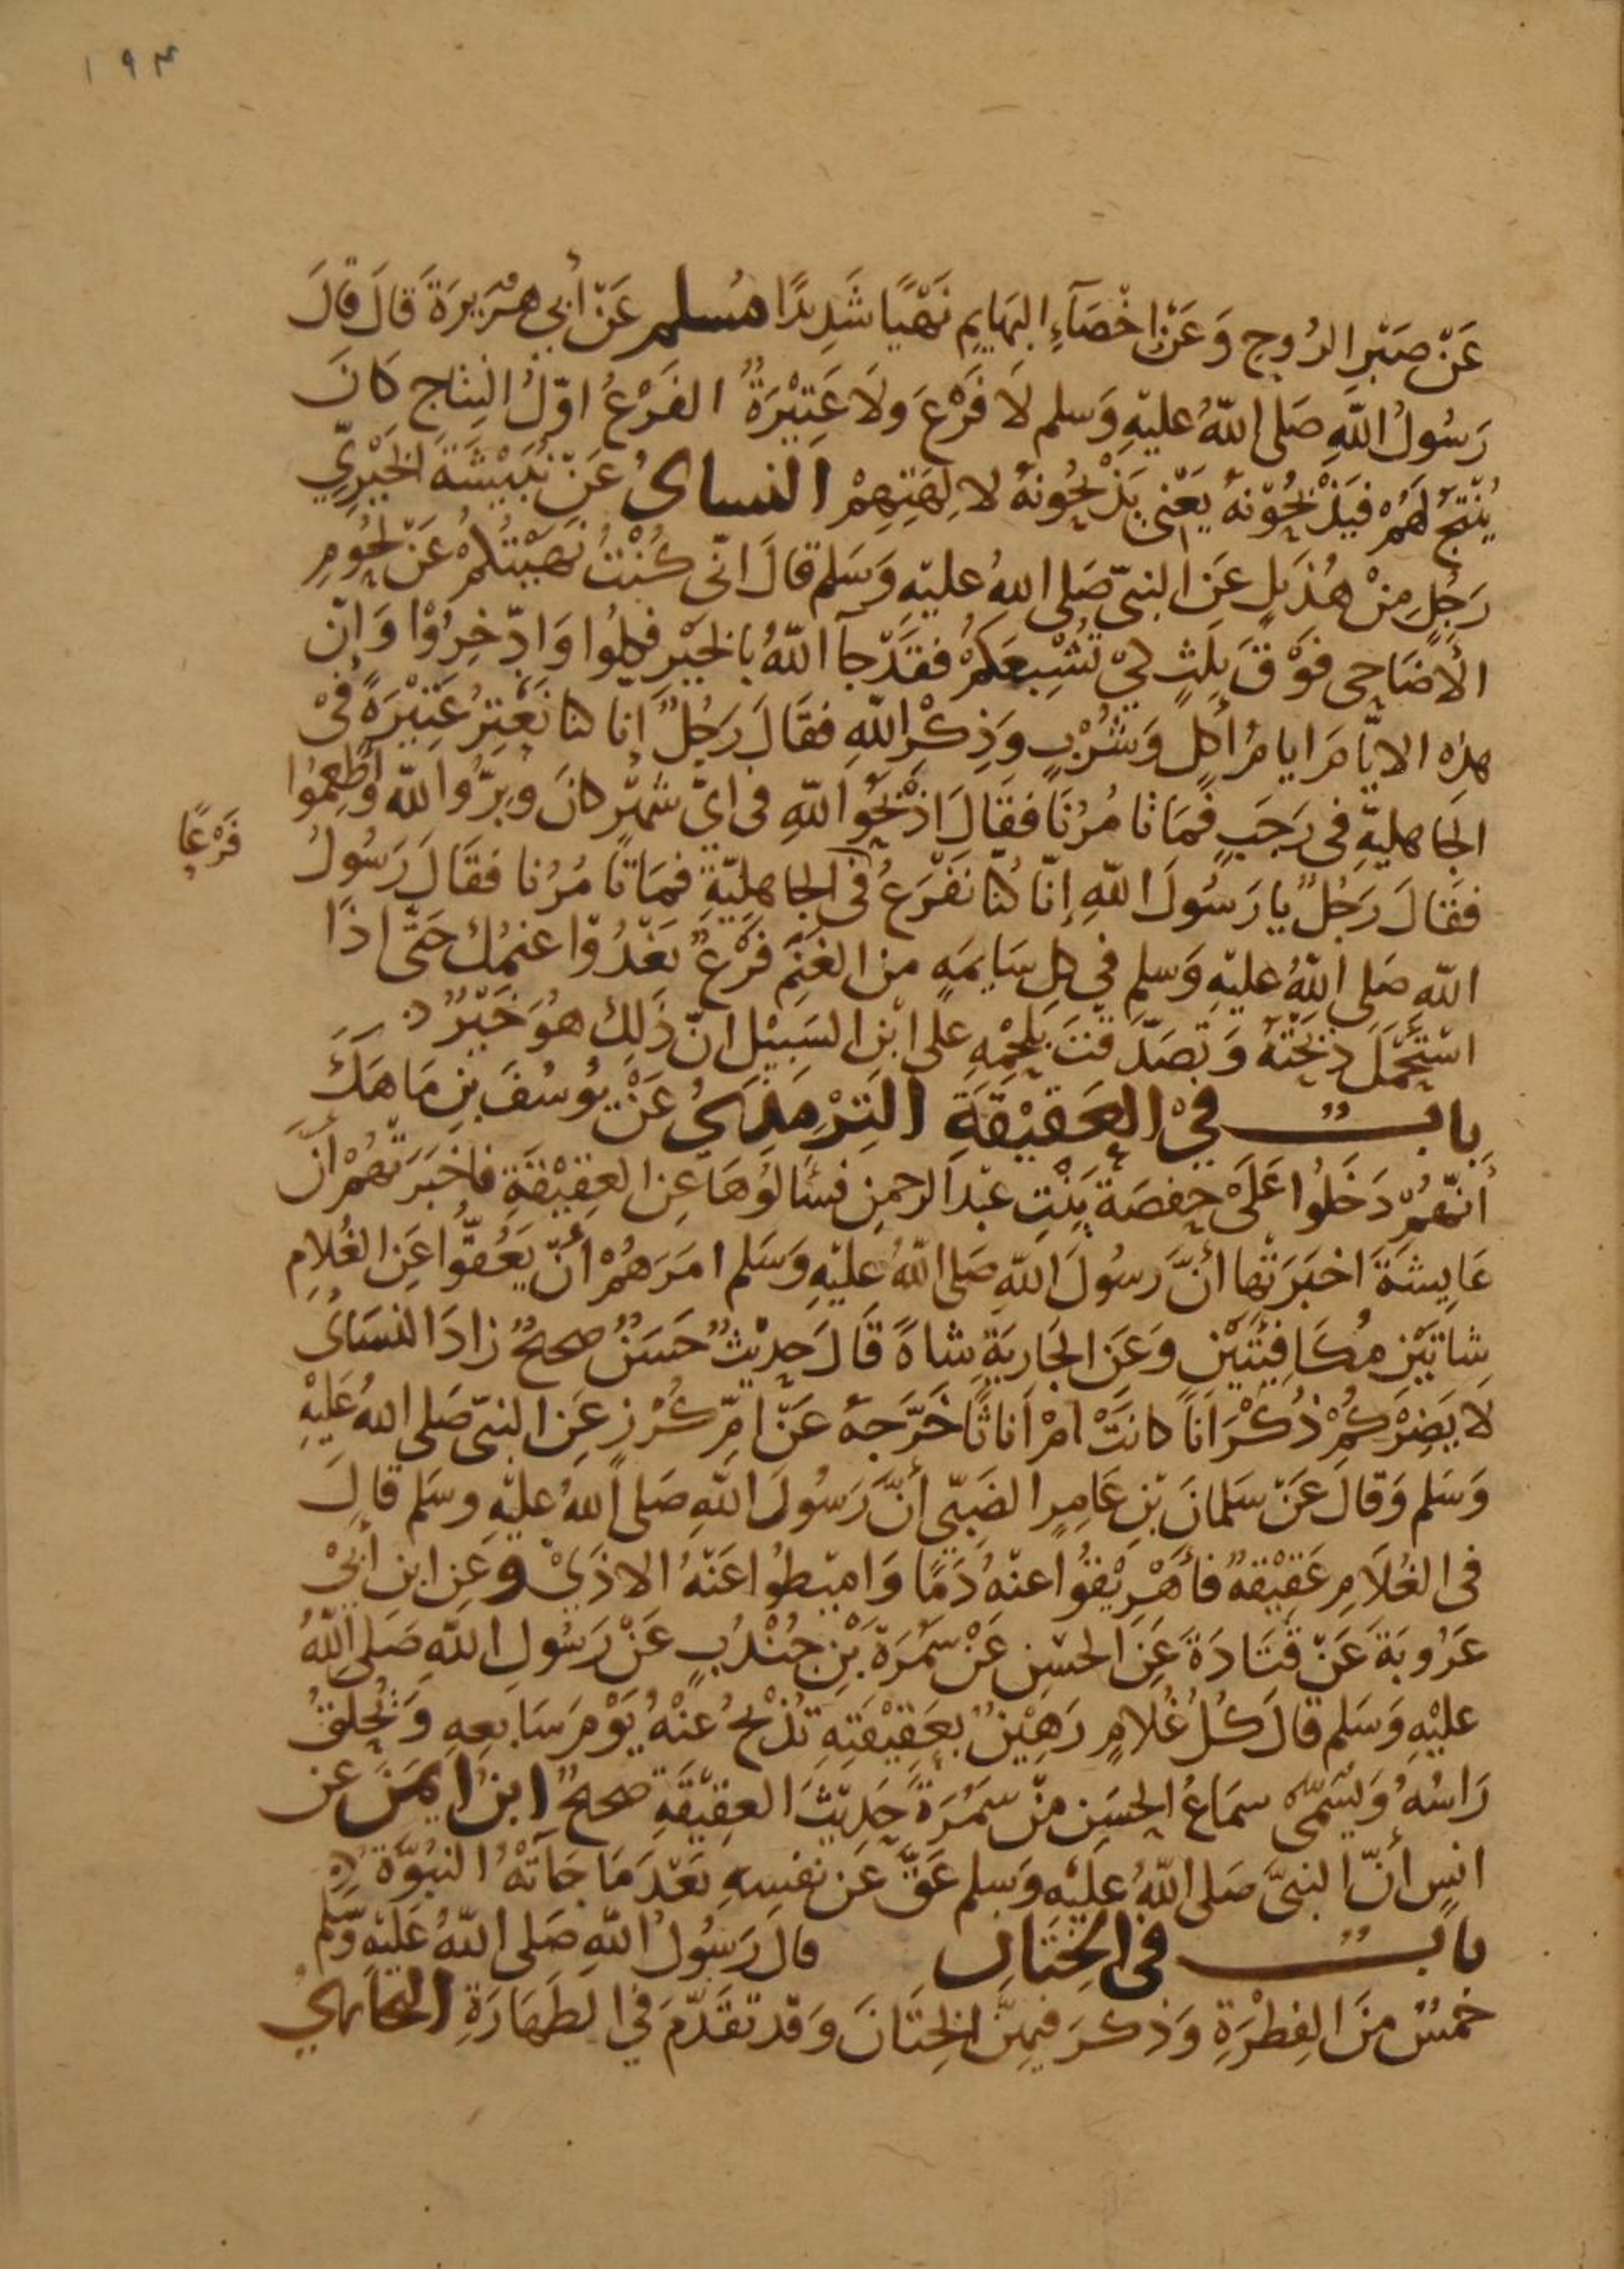 ١٩٣
عَنْ صَبْرِ الرُوحِ وَعَنْ اخْصَآءِ البَهَايِمِ نَهْيًا شَدِيدًا مُسلم عَنْ أَبِي هُرَيرَةَ قَالَ قَالَ
رَسُولُ اللهِ صَلى اللهُ عليْهِ وَسلم لَا فَرَعَ وَلَا عَتِيْرَةٌ الفَرَعُ اوّلُ النِتَاجِ كَانَ
يُنْتَجُ لَهُمْ فَيَذْبَحُوْنَهُ يَعْنِي يَذْبَحُونَهُ لالِهَتِهِمْ النساىُ عَنْ نُبَيْشَةَ الخَيْرِيِّ
رَجُلٍ مِنْ هُذَيلٍ عَنِ النبيّ صَلى اللهُ عليْهِ وَسَلم قالَ انّي كُنْتُ نَهَيْتُكُمْ عَنْ لُحُومِ
الأَضَاحِى فَوْقَ ثلِثٍ كيْ تُشْبِعَكُمْ فقَدْ جآ اللهُ بالخَيْرِ فكلُوا وَادّخِرُوْا وَإنّ
هذِه الايّامَ ايامُ أكلٍ وَشُرْبٍ وَذِكْرِ اللهِ فقَالَ رَجُلٌ إنا كنا نَعْتِرُ عَتِيْرَةً فيْ
الجَاهليّةِ فى رَجَبٍ فَمَا تَا مُرُنَا فقَالَ اذْبَحُوا للهِ فى ايّ شَهْرٍ كانَ وَبِرُّوا للهِ وَأَطْعِمُوا
فقَالَ رَجُلٌ يا رَسُولَ اللهِ إنّا كُنّا نَفْرَعُ في الجاهليّةِ فمَا تَا مُرُنا فقَالَ رَسُولُ
فَرَعًا
اللهِ صَلى اللهُ عليْهِ وَسلم في كلِ سَايمَةٍ من الغَنَمِ فَرَعٌ تَغْدُوْا غنمُكَ حَتّى اذَا
اسْتَحْمَلَ ذبَحْتَهُ وَتصَدّقتَ بلحْمِهِ عَلى ابْنِ السَبِيْلِ انّ ذَلِكَ هُوَ خَيْرٌ
بابٌ في العَقيْقَةِ التِرْمِذيُ عَنْ يُوسُفَ بْنِ مَاهَكَ
أنّهُمْ دَخَلُوا عَلَى حفصَةَ بِنْتِ عبْد الرحمنِ فسَألوُهَا عِن العَقِيْقَةِ فاخْبَرَتْهُمْ أنّ
عَايِشَةَ اخْبَرَتْها أنّ رسُولَ اللهِ صَلى اللهُ عليْهِ وَسَلم امَرَهُمْ أنّ يَعُقوُّا عَنِ الغُلامِ
شاتيْنِ مُكَافِيَتَيْنِ وَعَن الجَاريَةِ شاةً قَالَ حَدِيْثٌ حَسَنٌ صحيحٌ زادَ النسَائىُ
لَا يَضرُكُمْ ذُكْرَاناً كانَتْ امْ اَناثًا خَرّجَهُ عَنْ امِّ كُرْزٍ عَنِ النبىّ صَلى اللهُ عَليْهِ
وَسَلم وَقالَ عَنْ سَلمانَ بْنِ عَامِرٍ الضَبيّ أنّ رَسُولَ اللهِ صَلى اللهُ عليْهِ وسَلم قالَ
في الغُلَامِ عَقيْقةٌ فَأَهْرِيْقُوُا عنْهُ دَمًا وَامِيْطُوُا عَنْهُ الاذَيْ وعَنِ ابن أَبيْ
عَرُوبَةَ عَنْ قَتَادَةَ عَنِ الحسَنِ عَنْ سَمُرَةَ بْنِ جُنْدُبٍ عَنْ رَسُولِ اللهِ صَلى اللهُ
عليْهِ وَسَلم قالَ كُلُ غُلامٍ رَهِيْنٌ بعَقِيْقَتِهِ تُذْبَحُ عَنْهُ يَوْمَ سَابِعِهِ وَتُحْلقُ
رَاسُهُ وَيُسَمّى سمَاعُ الحسَنِ منْ سَمُرَةَ حَدِيْثَ العَقِيْقَةِ صحيحٌ ابنُ ايْمَنَ عن
انسٍ أنّ النبىّ صَلى اللهُ عَليْهِ وَسلم عَقّ عَن نفسِهِ بَعْدَ مَا جَآتْهُ النبُوّة
بابٌ في الخِتَانِ قالَ رَسُولُ اللهِ صَلى اللهُ عَليْهِ وَسلم
خمسٌ مِنَ الفِطْرَةِ وَذكرَ فيهِنّ الخِتَانَ وَقدْ تقَدّمَ في الطَهَارَةِ البخَارِيُ